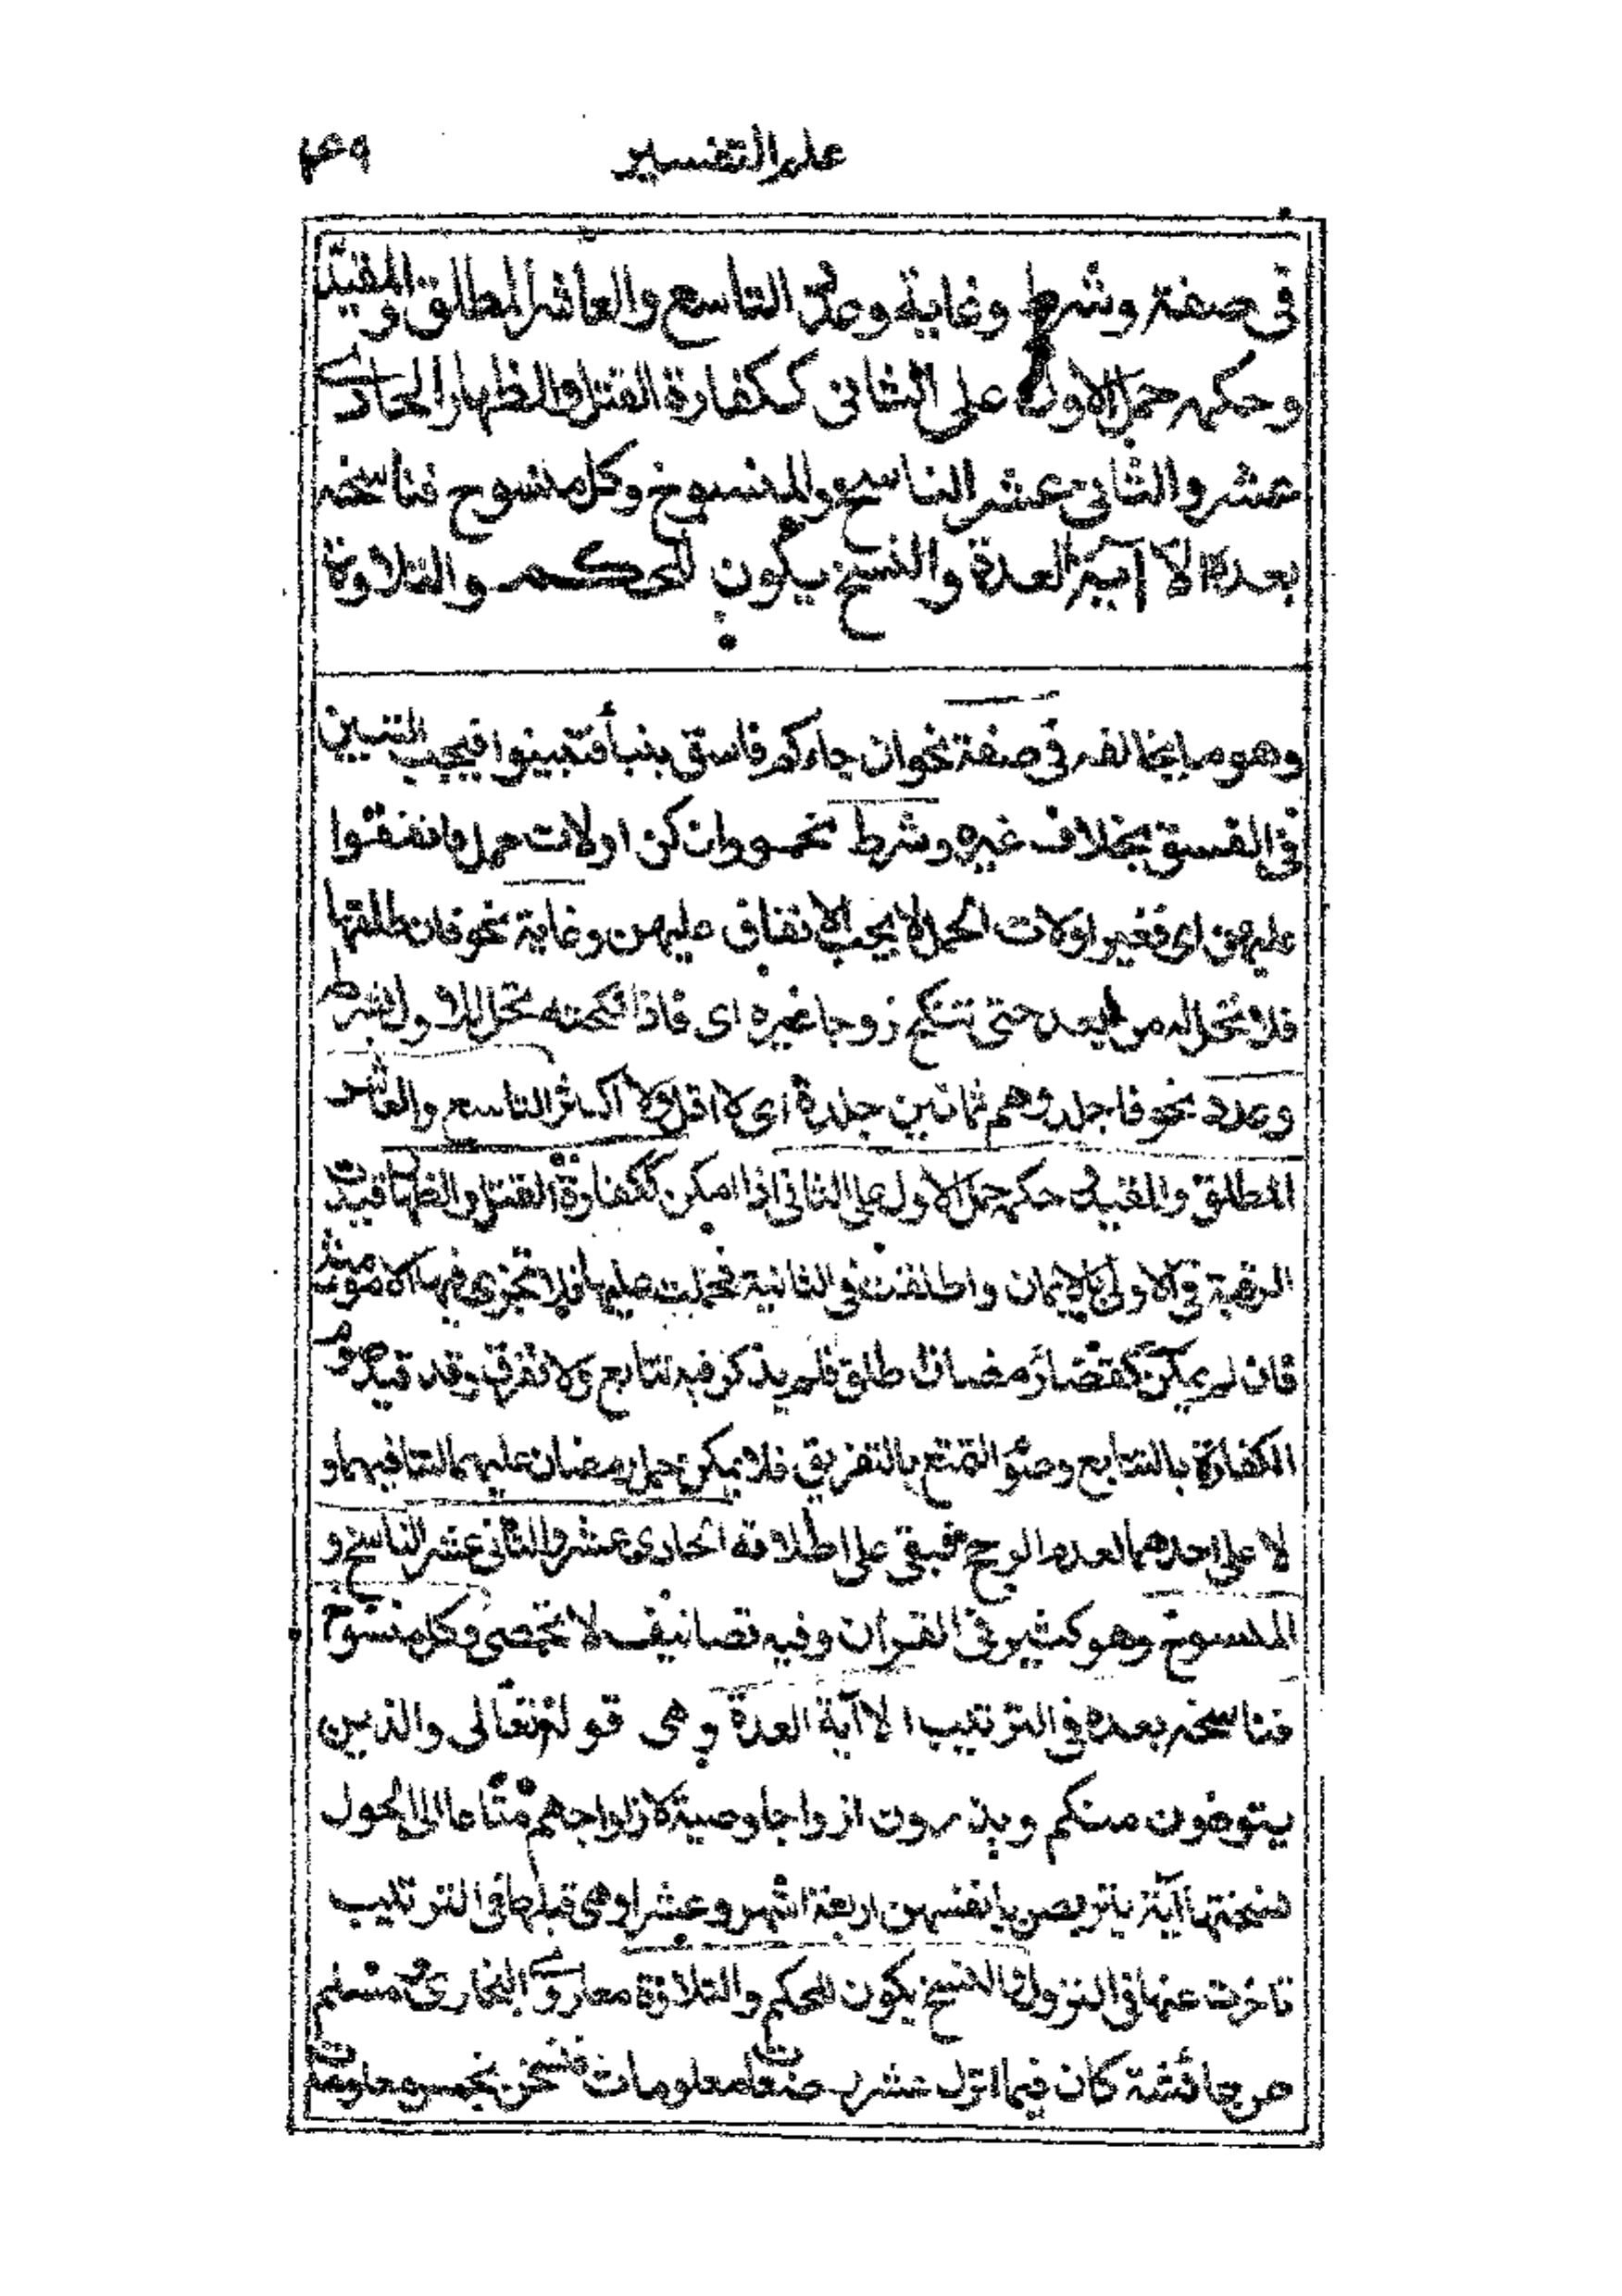 علم التفسير ٤٩
فى صفة وشرط وغاية وعدد التاسع والعاشر المطلق والمقيد
وحكمه حمل الاول على الثانى ككفارة القتل والظهار الحادى
عشر والثانى عشر الناسخ والمنسوخ وكل منسوخ فناسخه
بعده الا آية العدة والنسخ يكون للحكم والتلاوة
وهو ما يخالفه فى صفة نحو ان جاءكم فاسق بنبأ فتبينوا فيجب التبين
فى الفسق بخلاف غيره وشرط نحو وان كن اولات حمل فانفقوا
عليهن اى فغير اولات الحمل لا يجب الانفاق عليهن وغاية نحو فان طلقها
فلا تحل له من بعد حتى تنكح زوجا غيره اى فاذا نكحته تحل للاول بشرطه
وعدد نحو فاجلدوهم ثمانين جلدة اى لا اقل ولا اكثر التاسع والعاشر
المطلق والمقيد حكمه حمل الاول على الثانى اذا امكن ككفارة القتل والظهار قيدت
الرقبة فى الاولى بالايمان واطلقت فى الثانية فحملت عليها فلا تجزى فيها الا مومنة
فان لم يمكن كقضاء رمضان اطلق فلم يذكر فيه تتابع ولا تفريق وقد قيد صوم
الكفارة بالتتابع وصوم التمتع بالتفريق فلا يمكن حمل رمضان عليهما لتنافيهما و
لا على احدهما لعدم المرجح فبقى على اطلاقه الحادى عشر والثانى عشر الناسخ و
المنسوخ وهو كثير فى القران وفيه تصانيف لا تحصى وكل منسوخ
فناسخه بعده فى الترتيب الا آية العدة وهى قوله تعالى والذين
يتوفون منكم ويذرون ازواجا وصية لازواجهم متاعا الى الحول
نسختها آية يتربصن بانفسهن اربعة اشهر وعشرا وهى قبلها فى الترتيب
تاخرت عنها فى النزول والنسخ يكون للحكم والتلاوة معا روى البخارى ومسلم
عن عائشة كان فيما انزل عشر رضعات معلومات فنسخن بخمس معلومات